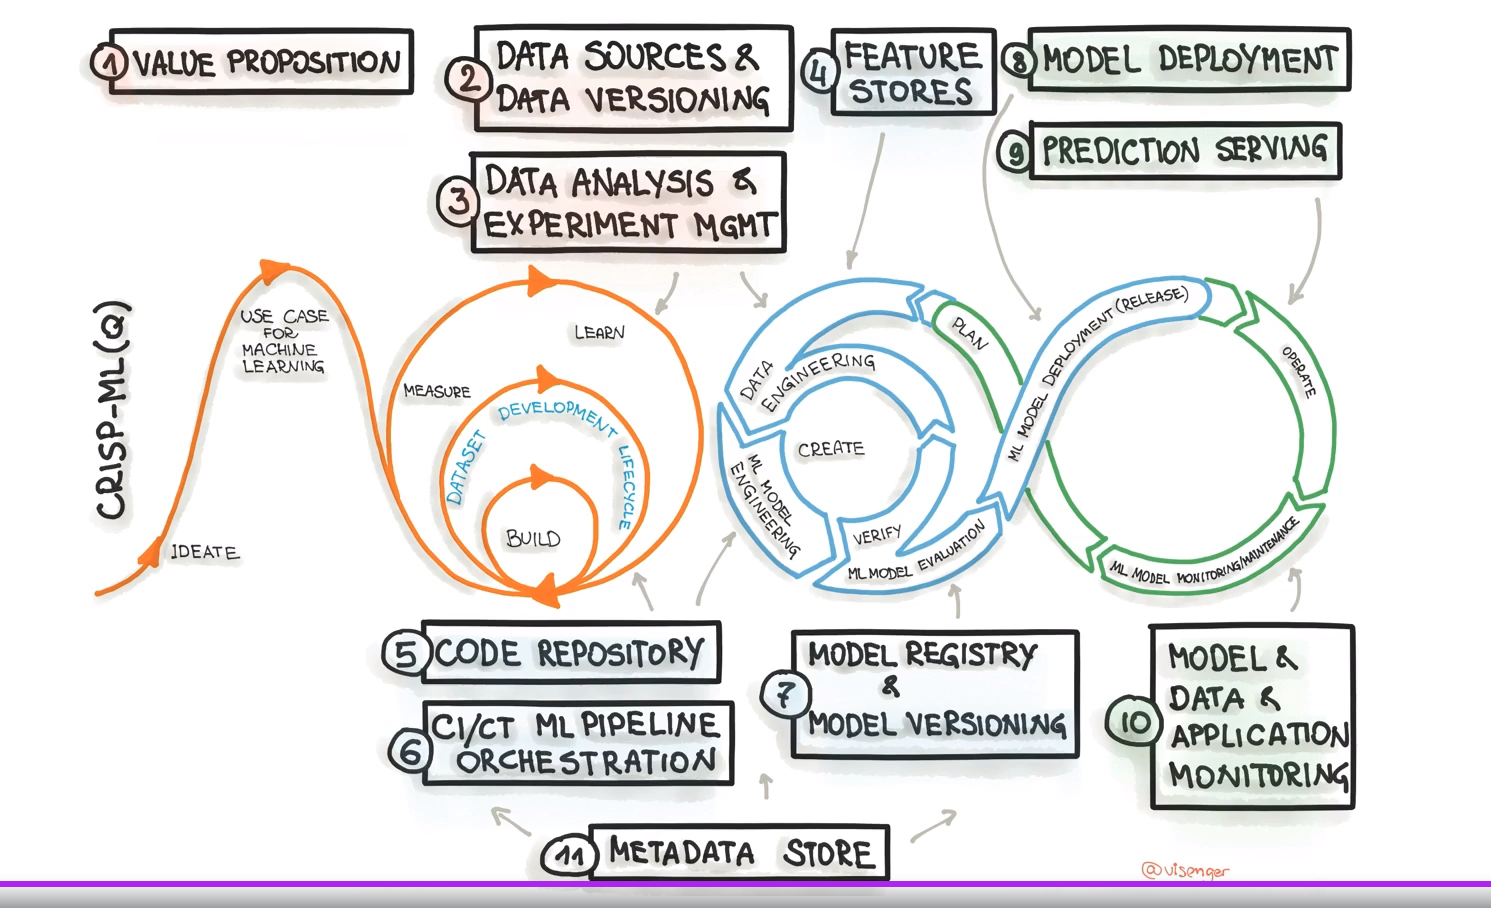 1 VALUE PROPOSITION
2 DATA SOURCES &
DATA VERSIONING
3 DATA ANALYSIS &
EXPERIMENT MGMT
4 FEATURE
STORES
8 MODEL DEPLOYMENT
9 PREDICTION SERVING
CRISP-ML(Q)
IDEATE
USE CASE
FOR
MACHINE
LEARNING
MEASURE
LEARN
DATASET DEVELOPMENT LIFECYCLE
BUILD
DATA
ENGINEERING
CREATE
ML MODEL
ENGINEERING
VERIFY
ML MODEL EVALUATION
PLAN
ML MODEL DEPLOYMENT (RELEASE)
OPERATE
ML MODEL MONITORING/MAINTENANCE
5 CODE REPOSITORY
6 CI/CT ML PIPELINE
ORCHESTRATION
7 MODEL REGISTRY
&
MODEL VERSIONING
10 MODEL &
DATA &
APPLICATION
MONITORING
11 METADATA STORE
@visenger